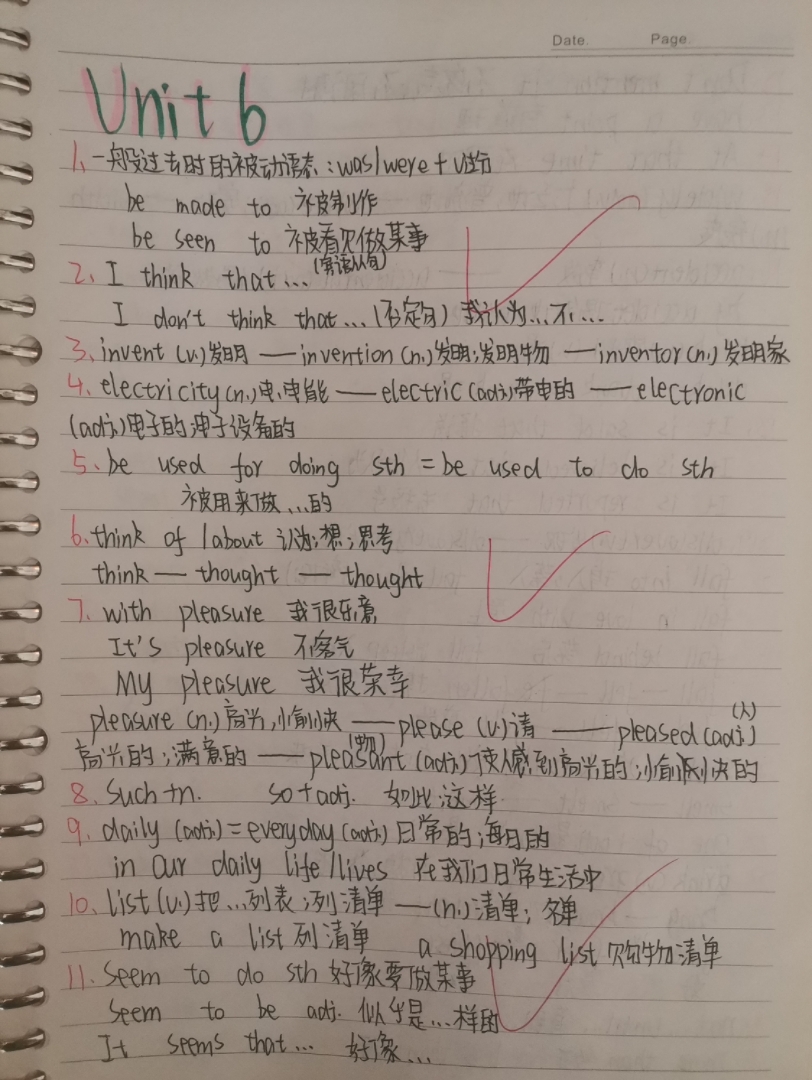 Date. Page.
Unit 6
1. 一般过去时的被动语态：was/were + v过分
be made to 被制作
be seen to 被看见做某事
2. I think that...(宾语从句)
I don't think that...(否定句) 我认为...不...
3. invent (v.)发明 — invention (n.)发明;发明物 — inventor (n.)发明家
4. electricity (n.)电;电能 — electric (adj.)带电的 — electronic
(adj.)电子的;电子设备的
5. be used for doing sth = be used to do sth
被用来做...的
6. think of / about 认为;想;思考
think — thought — thought
7. with pleasure 我很乐意
It's pleasure 不客气
My pleasure 我很荣幸
pleasure (n.)高兴,愉快 — please (v.)请 — pleased (adj.) (人)
高兴的;满意的 — pleasant (adj.) (物) 使人感到高兴的;愉快的
8. Such+n. so+adj. 如此;这样
9. daily (adj.) = everyday (adj.) 日常的;每日的
in our daily life/lives 在我们日常生活中
10. list (v.)把...列表;列清单 — (n.)清单;名单
make a list 列清单 a shopping list 购物清单
11. seem to do sth 好像要做某事
seem to be adj. 似乎是...样的
It seems that... 好像...